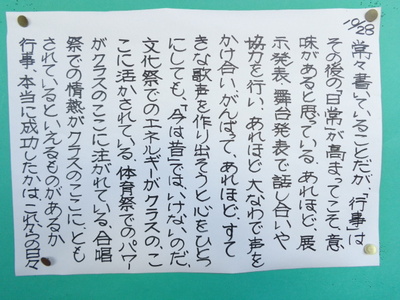 10/28
常々書いていることだが、「行事」は
その後の「日常」が高まってこそ、意
味があると思っている。あれほど、展
示発表、舞台発表で話し合いや
協力を行い、あれほど大なわで声を
かけ合い、がんばって、あれほど、すて
きな歌声を作り出そうと心をひとつ
にしても、「今は昔」では、いけないのだ。
文化祭でのエネルギーがクラスの、こ
こに活かされている、体育祭でのパワー
がクラスのここに注がれている、合唱
祭での情熱がクラスのここに、とも
されているといえるものがあるか
行事、本当に成功したかは、これからの日々